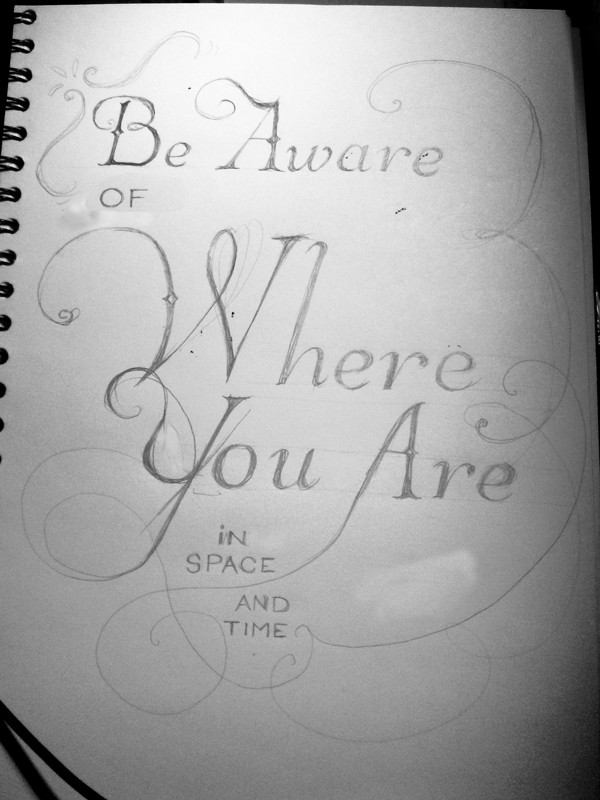 Be Aware
OF
Where
You Are
iN
SPACE
AND
TIME